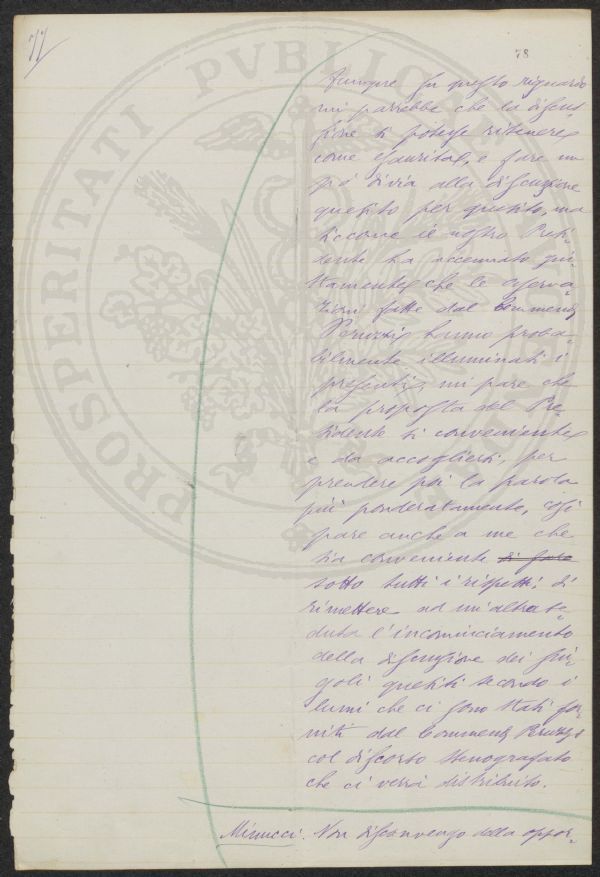 77
78
Dunque su questo riguardo
mi parrebbe che la discus-
sione si potesse ritenere
come esaurita, e fare un
po' di via alla discussione
quesito per quesito, ma
siccome il nostro Presi-
dente ha accennato giu-
stamente che le osserva-
zioni fatte dal Commend
Peruzzi hanno proba-
bilmente illuminati i
presenti, mi pare che
la proposta del Pre-
sidente si conveniente
e da accogliersi, per
prendere poi la parola
più ponderatamente, così
pare anche a me che
sia conveniente di fare
sotto tutti i rispetti: di
rimettere ad un'altra se-
duta l'incominciamento
della discussione dei sin-
goli quesiti secondo i
lumi che ci sono stati for-
niti dal Commend Peruzzi
col discorso stenografato
che ci verrà distribuito.
Minucci: Non disconvengo della oppor-
PROSPERITATI PVBLICAE